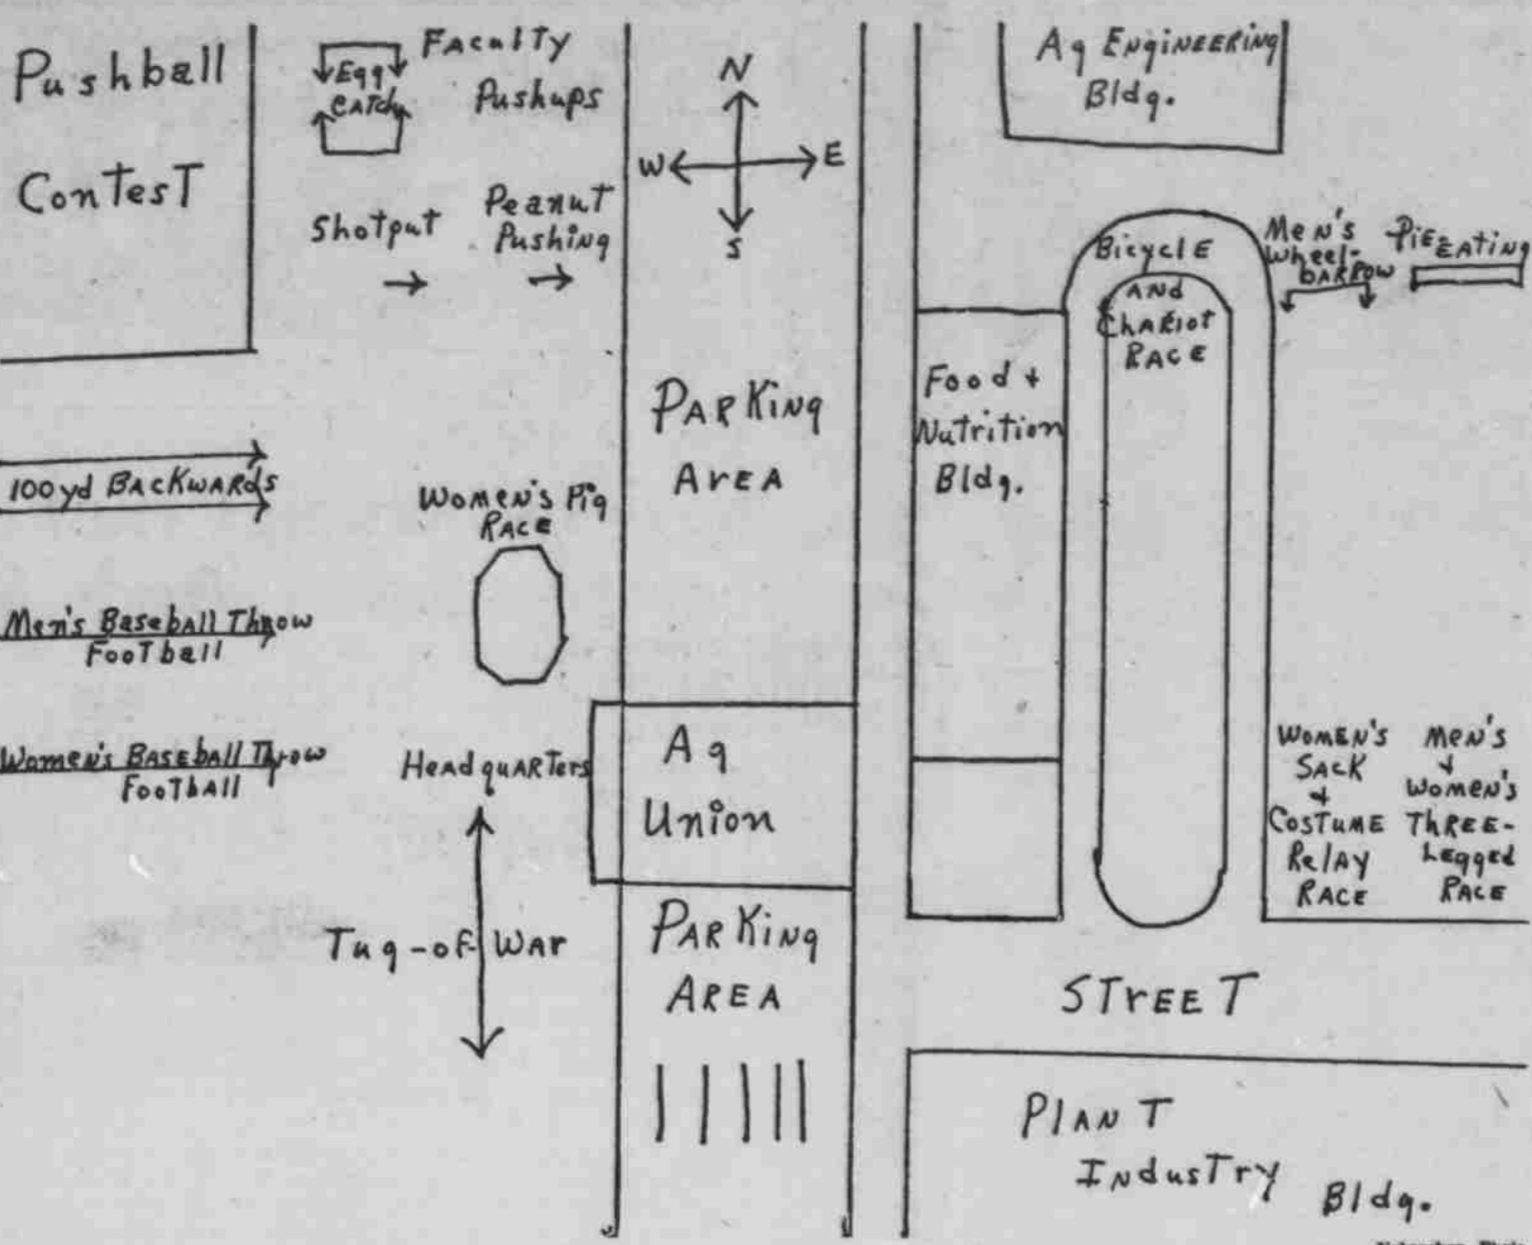 Pushball
Contest
Egg
Catch
Faculty
Pushups
Shotput
Peanut
Pushing
N
W
E
S
Ag Engineering
Bldg.
Bicycle
and
Chariot
Race
Men's
Wheel-
barrow
Pie-Eating
Parking
Area
Food +
Nutrition
Bldg.
100yd Backwards
Women's Pig
Race
Men's Baseball Throw
Football
Women's Baseball Throw
Football
Headquarters
Ag
Union
Women's
Sack
+
Costume
Relay
Race
Men's
+
Women's
Three-
Legged
Race
Tug-of-War
Parking
Area
Street
Plant
Industry Bldg.